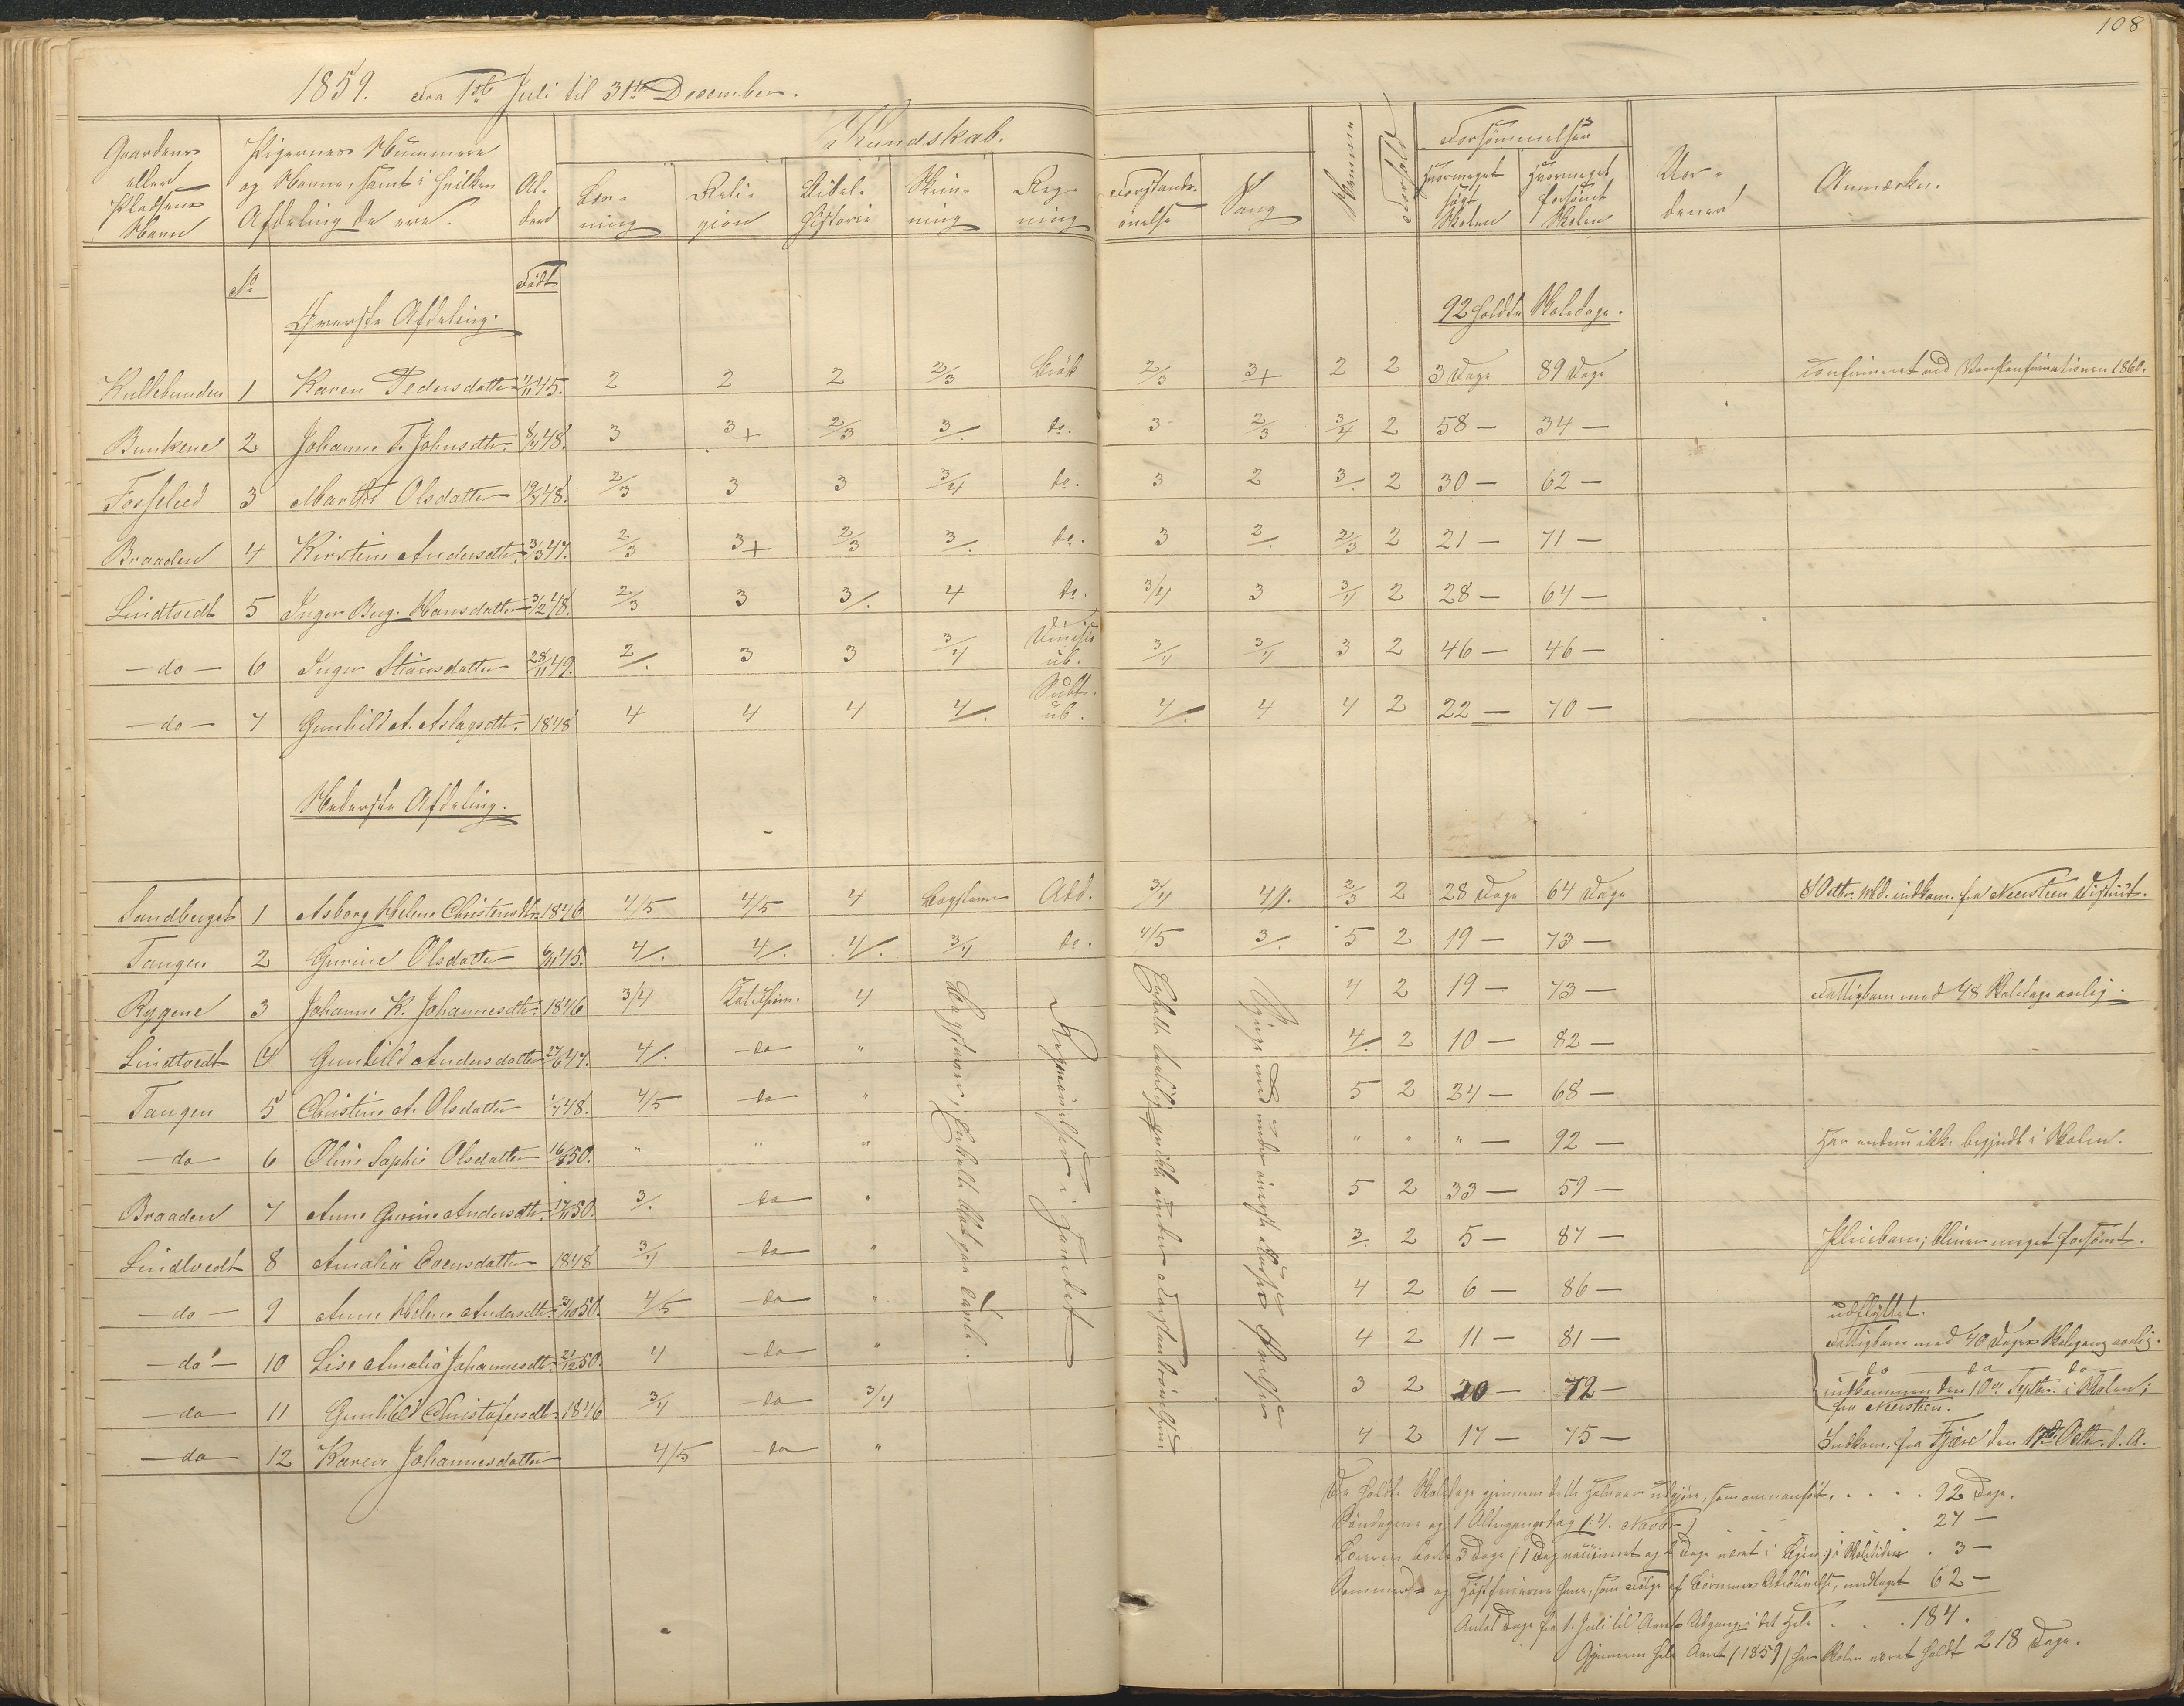 108
1859. Fra 1ste Juli til 31te December.
Gaardens eller Pladsens Navn
Pigernes Nummere og Navne, samt i hvilken Afdeling de ere.
Alder
Kundskab.
Læsning
Religion
Bibelhistorie
Skrivning
Regning
Forstandsøvelse
Sang
Evne
Forhold
Forsømmelser
Hvormeget søgt Skolen
Hvormeget forsømt Skolen
Anmærkn.
No
Født
Øverste Afdeling.
92 holdte Skoledage.
Kullebunden 1 Karen Pedersdatter 45. 2 2 2 2/3 Brøk 2/3 3+ 2 2 3 Dage 89 Dage confirmeret ved Vaarkonfirmationen 1860.
Bunkene 2 Johanne T. Johnsdtr. 48. 3 3+ 2/3 3/. do. 3 2/3 3/4 2 58 — 34 —
Fosselied 3 Marthe Olsdatter 48. 2/3 3 3 3/4 do. 3 2 3/. 2 30 — 62 —
Braaden 4 Kirstine Andersdtr. 3/3 47. 2/3 3+ 2/3 3/. do. 3 2/. 2/3 2 21 — 71 —
Lindtvedt 5 Inger Berg. Hansdatter 3/2 48. 2/3 3 3/. 4 do. 3/4 3 3/4 2 28 — 64 —
— do — 6 Inger Steensdatter 28/11 49. 2/. 3 3 3/4 3/4 3/4 3 2 46 — 46 —
— do — 7 Gunhild A. Aslagsdtr. 1848 4 4 4 4/. Subtr. 4/. 4 4 2 22 — 70 —
Nederste Afdeling.
Sandberget 1 Asborg Helene Christensdtr. 1846 4/5 4/5 4 Bogstaver Add. 3/4 4/. 2/3 2 28 Dage 64 Dage 8 Octbr. indkom. fra Neersteen District.
Tangen 2 Gurine Olsdatter 45. 4/. 4/. 4/. 3/4 do. 4/5 3/. 5 2 19 — 73 —
Rygene 3 Johanne K. Johannesdtr. 1846 3/4 4 4 2 19 — 73 — Fattigbarn med 48 Skoledage aarlig.
Lindtvedt 4 Gunhild Andersdatter 27/6 47. 4/. — do — " 4/. 2 10 — 82 —
Tangen 5 Christine A. Olsdatter 48. 4/5 do " 5 2 24 — 68 —
— do 6 Oline Sophie Olsdatter 16/8 50. " " " " " " — 92 — Har endnu ikke begyndt i Skolen.
Braaden 7 Anne Gurine Andersdtr. 50. 3/. do " 5 2 33 — 59 —
Lindtvedt 8 Amalia Evensdatter 1848 3/4 — do " 3/. 2 5 — 87 — Pleiebarn; bliver meget forsømt.
— do — 9 Anne Helene Andersdtr. 50. 4/5 — do " 4 2 6 — 86 — udflyttet.
— do — 10 Lise Amalia Johannesdtr. 21/12 50. 4 — do " 4 2 11 — 81 — Fattigbarn med 40 Dages Skolegang aarlig.
— do 11 Gunhild Christofersdtr. 1846 3/4 — do 3/4 3 2 20 — 72 — do do do
indkommen den 10de Septbr. i Skolen; fra Neersteen.
— do 12 Karen Johannesdatter 4/5 do " 4 2 17 — 75 — Indkom. fra Fjære den 17de Octbr. d. A.
Bogstaver; Enkelte
Regneøvelser i Hovedet
De holdte Skoledage gjennem dette Halvaar udgjøre, som ovenanført, . . . . 92 Dage.
Søndagene og 1 Altergangsdag (: 4. Novbr :) 27 —
3 —
Sommer- og Høstferierne 62 —
Antal Dage fra 1. Juli til Aarets Udgang i det Hele . . . 184.
Gjennem hele Aaret (1859) har Skolen været holdt 218 Dage.